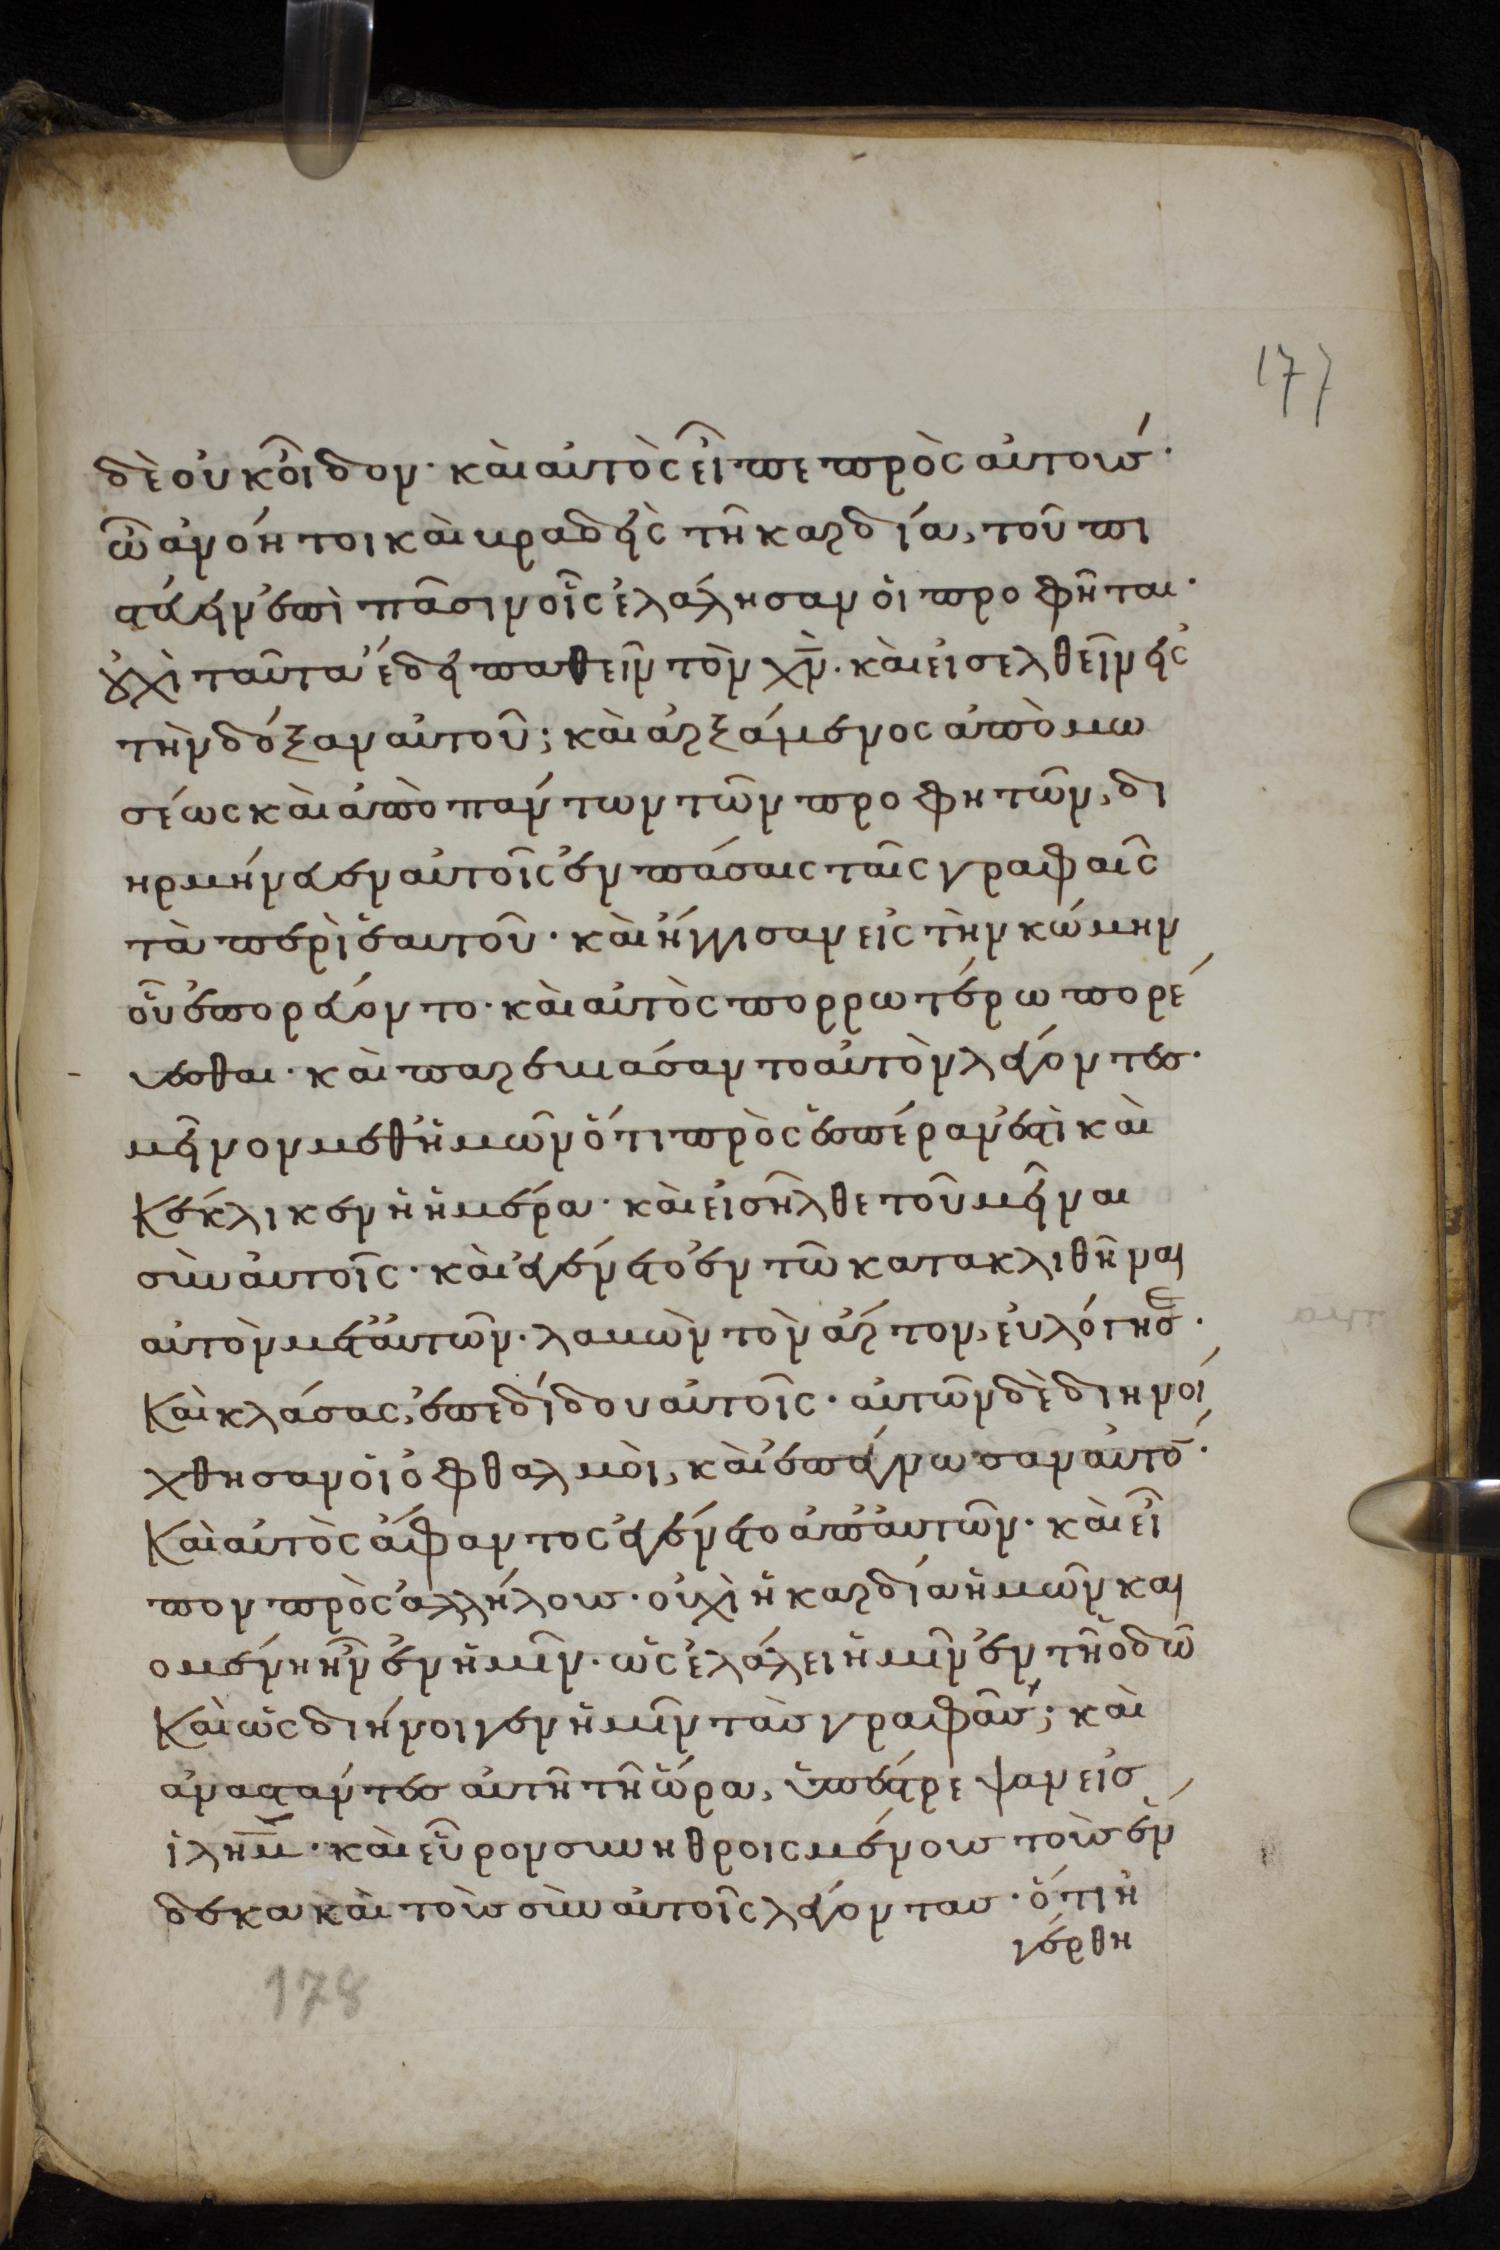 177
δὲ οὐκ οἶδον· καὶ αὐτὸς εἶπε πρὸς αὐτούς·
ὦ ἀνόητοι καὶ βραδεῖς τῆ καρδία, τοῦ πι
στεύειν ἐπὶ πᾶσιν οἷς ἐλάλησαν οἱ προφῆται·
οὐχὶ ταῦτα ἔδει παθεῖν τὸν χν̅· καὶ εἰσελθεῖν εἰς
τὴν δόξαν αὐτοῦ; καὶ ἀρξάμενος ἀπὸ μω
σέως καὶ ἀπὸ πάντων τῶν προφητῶν, δι
ηρμήνευεν αὐτοῖς ἐν πάσαις ταῖς γραφαῖς
τὰ περὶ ἑαυτοῦ· καὶ ἤγγισαν εἰς τὴν κώμην
οὗ ἐπορεύοντο· καὶ αὐτὸς πορρωτέρω πορε
υεσθαι· καὶ παρεβιάσαντο αὐτὸν λέγοντες·
μεῖνον μεθ ἡμῶν ὅτι πρὸς ἑσπέραν ἐστὶ καὶ
κέκλικεν ἡ ἡμέρα· καὶ εἰσῆλθε τοῦ μεῖναι
σὺν αὐτοῖς· καὶ ἐγένετο ἐν τῶ κατακλιθῆναι
αὐτὸν μετ αὐτῶν· λαβὼν τὸν ἄρτον, εὐλόγησε·
καὶ κλάσας, ἐπεδίδου αὐτοῖς· αὐτῶν δὲ διηνοί
χθησαν οἱ ὀφθαλμοὶ, καὶ ἐπέγνωσαν αὐτό·
καὶ αὐτὸς ἄφαντος ἐγένετο ἀπ αὐτῶν· καὶ εἶ
πον πρὸς ἀλλήλους· οὐχὶ ἡ καρδία ἡμῶν και
ομένη ἦν ἐν ἡμῖν· ὡς ἐλάλει ἡμῖν ἐν τῆ ὁδῶ
καὶ ὡς διήνοιγεν ἡμῖν τὰς γραφάς; καὶ
ἀναστάντες αὐτῆ τῆ ὥρα, ὑπέστρεψαν εἰς
ἱλημ̅· καὶ εὗρον συνηθροισμένους τοὺς ἕν
δεκα καὶ τοὺς σὺν αὐτοῖς λέγοντας· ὅτι ἠ
γέρθη
178